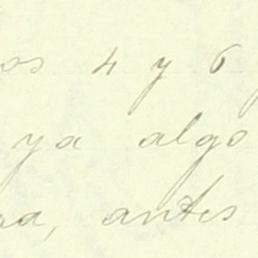 os 4 y 6
ya algo
ra, antes